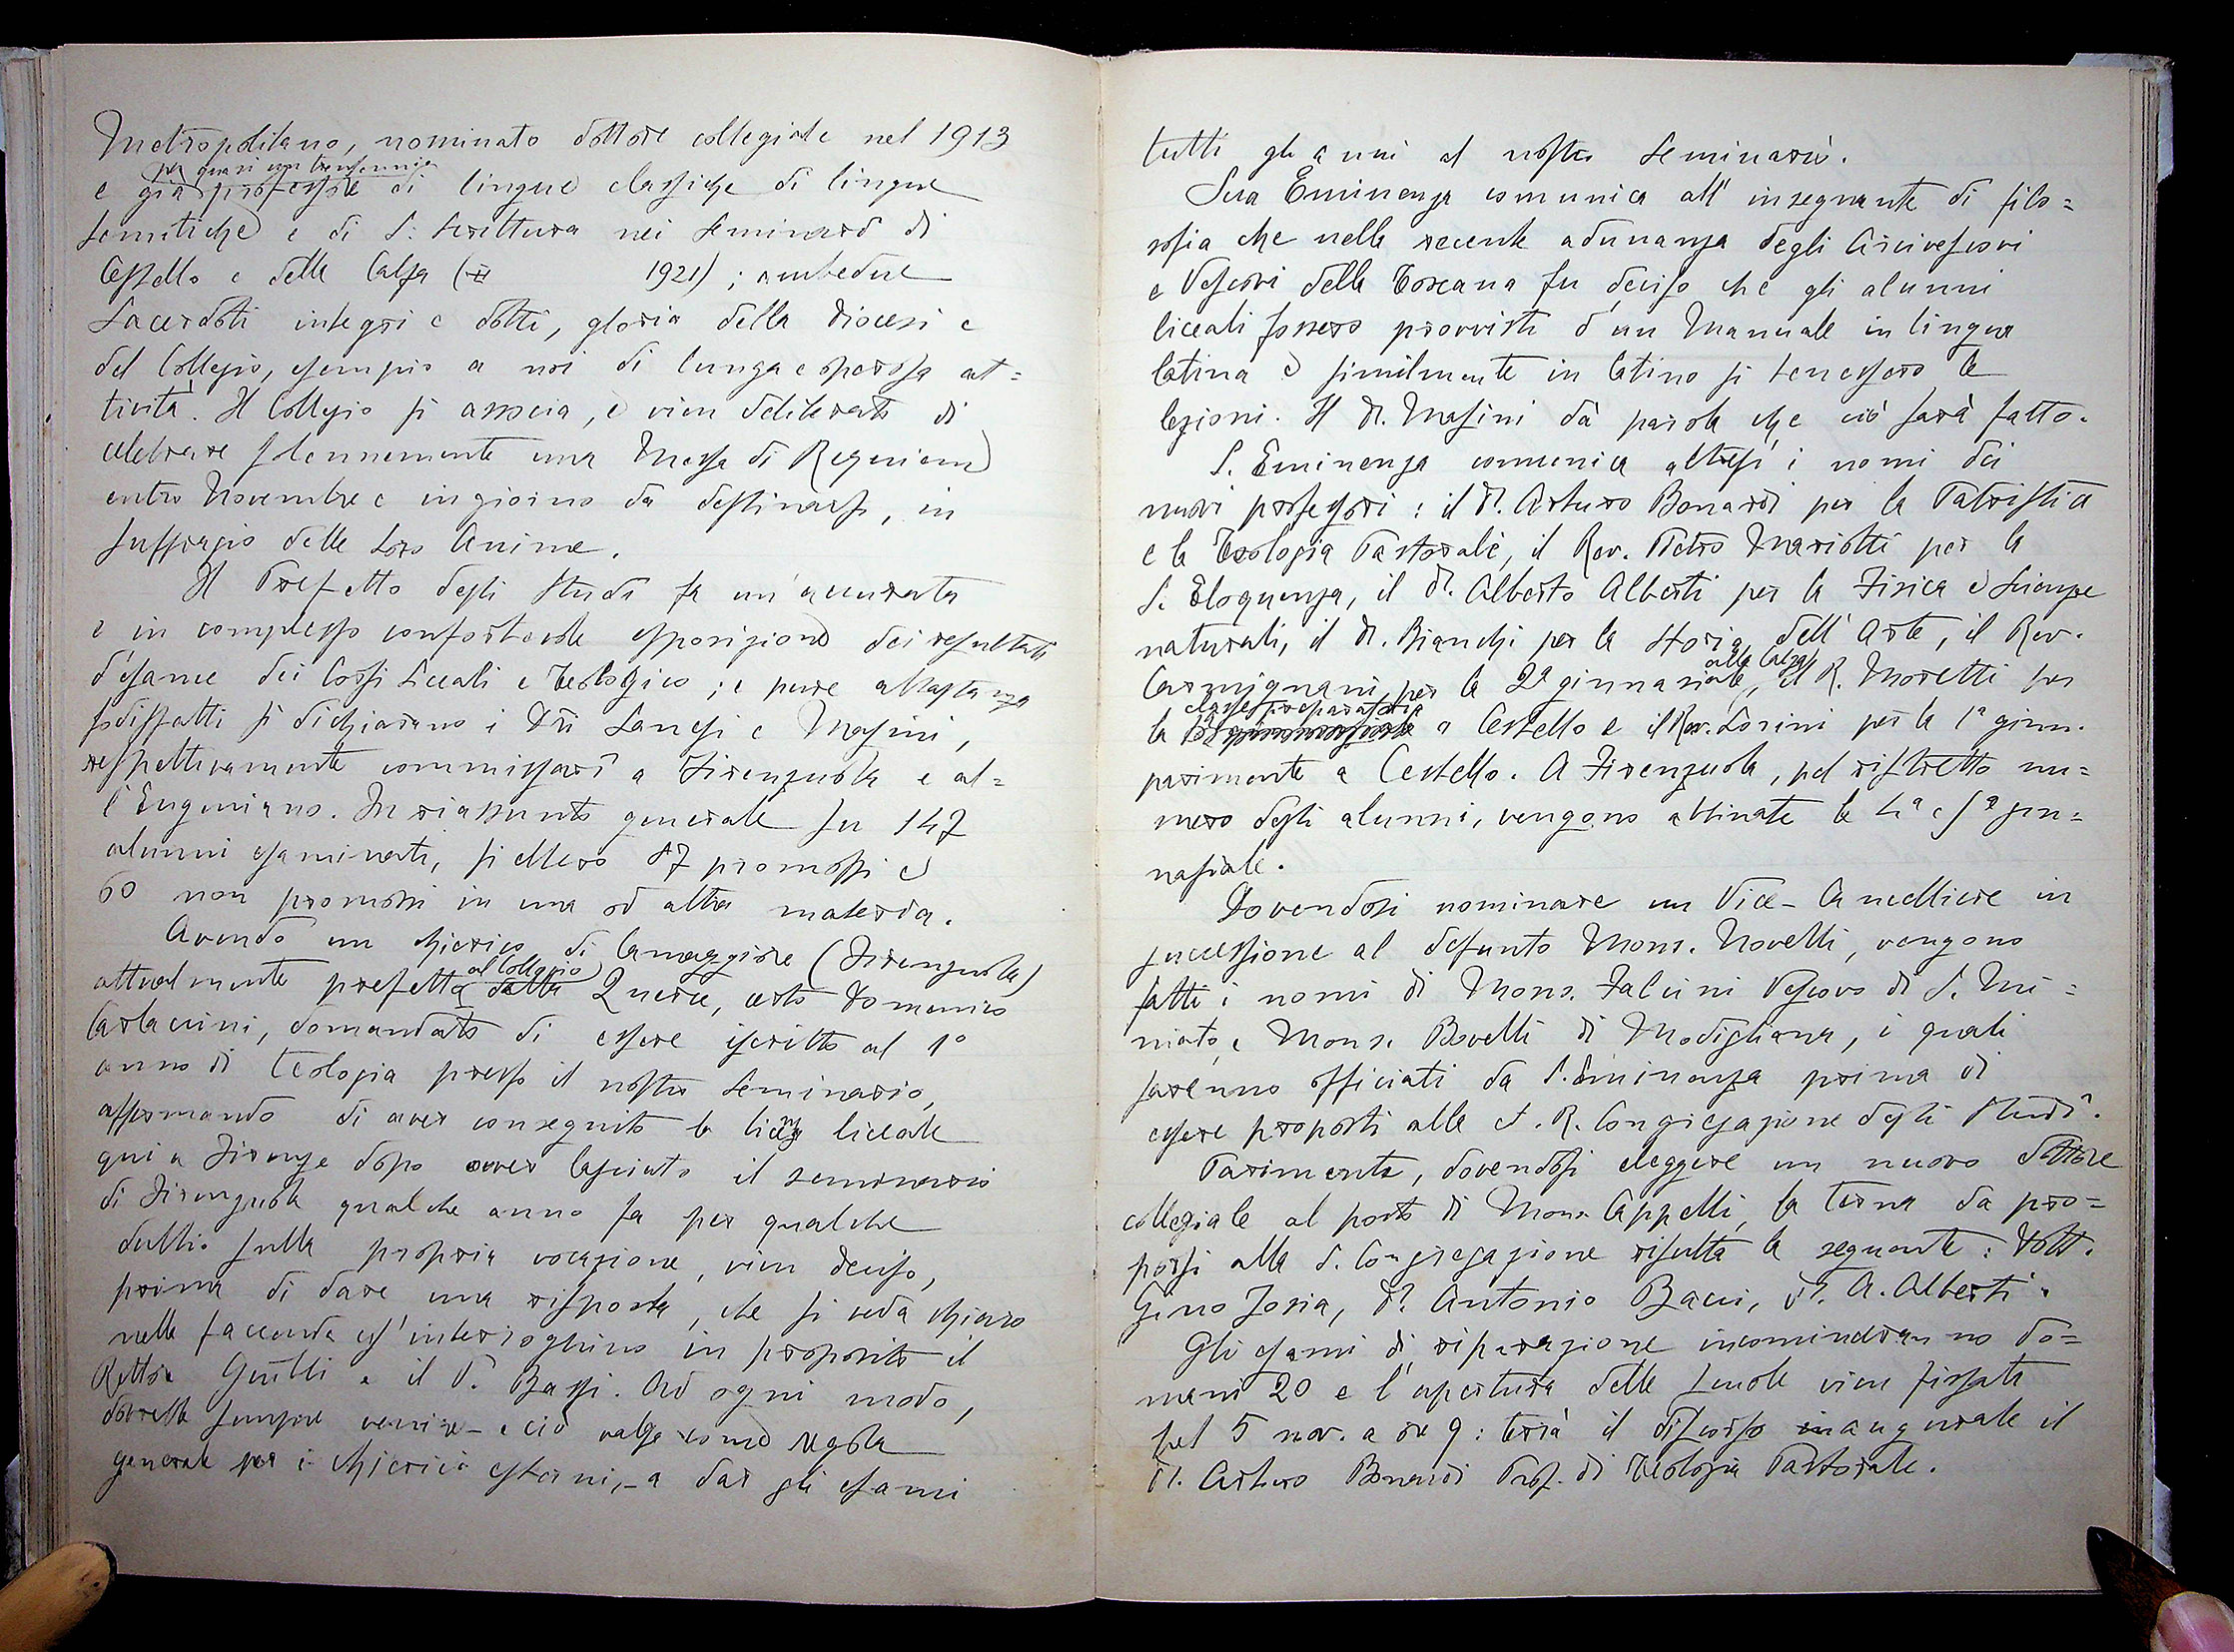 Metropolitano, nominato dottore collegiale nel 1913
per quasi un trentennio
e già professore di lingue classiche di lingue
semitiche e di S. Scrittura nei Seminari di
Cestello e della Calza († 1921); ambedue
Sacerdoti integri e dotti, gloria della diocesi e
del Collegio, esempio a noi di lunga operosa at=
tività. Il Collegio si associa, e vien deliberato di
celebrare solennemente una Messa di Requiem
entro Novembre e in giorno da destinarsi, in
suffragio delle Loro Anime.
Il Prefetto degli Studi fa un'accurata
e in complesso confortevole esposizione dei resultati
d'esame dei Corsi Liceali e Teologico; e pure abbastanza
sodisfatti si dichiarano i Dri Lanesi e Masini,
respettivamente commissari a Firenzuola e al=
l'Eugeniano. In riassunto generale su 147
alunni esaminati, si ebbero 87 promossi e
60 non promossi in una od altra materia.
Avendo un chierico di Camaggiore (Firenzuola)
al Collegio
attualmente prefetto della Querce, certo Domenico
Carlacini, domandato di essere iscritto al 1°
anno di Teologia presso il nostro Seminario,
affermando di aver conseguito la licenza liceale
qui a Firenze dopo aver lasciato il seminario
di Firenzuola qualche anno fa per qualche
dubbio sulla propria vocazione, vien deciso,
prima di dare una risposta, che si veda chiaro
nella faccenda e s'interroghino in proposito il
Rettore Giulli e il P. Bassi. Ad ogni modo,
dovrebbe sempre venire - e ciò valga come regola
generale per i chierici esterni, - a dar gli esami
tutti gli anni al nostro Seminario.
Sua Eminenza comunica all'insegnante di filo=
sofia che nella recente adunanza degli Arcivescovi
e Vescovi della Toscana fu deciso che gli alunni
liceali fossero provvisti d'un Manuale in lingua
latina e similmente in latino si tenessero le
lezioni. Il Dr. Masini dà parola che ciò sarà fatto.
S. Eminenza comunica altresì i nomi dei
nuovi professori: il Dr. Arturo Bonardi per la Patristica
e la Teologia Pastorale, il Rev. Pietro Mariotti per la
S. Eloquenza, il Dr. Alberto Alberti per la Fisica e Scienze
naturali, il Dr. Bianchi per la Storia dell'Arte, il Rev.
alla Calza
Carmignani per la 2ª ginnasiale, il R. Moretti per
classe preparatoria
la 1ª ginnasiale a Cestello e il Rev. Lorini per la 1ª ginn.
parimente a Cestello. A Firenzuola, pel ristretto nu=
mero degli alunni, vengono abbinate la 4ª e 5ª gin=
nasiale.
Dovendosi nominare un Vice-Cancelliere in
successione al defunto Mons. Novelli, vengono
fatti i nomi di Mons. Falcini Vescovo di S. Mi=
niato, e Mons. Bovelli di Modigliana, i quali
saranno officiati da S. Eminenza prima di
essere proposti alla S. R. Congregazione degli Studi.
Parimente, dovendosi eleggere un nuovo dottore
collegiale al posto di Mons. Cappelli, la terna da pro=
porsi alla S. Congregazione risulta la seguente: Dott.
Gino Josia, Dr. Antonio Bacci, Dr. A. Alberti.
Gli esami di riparazione incominceranno do=
mani 20 e l'apertura delle Scuole vien fissata
pel 5 nov. a ore 9: terrà il discorso inaugurale il
Dr. Arturo Bonardi Prof. di Teologia Pastorale.